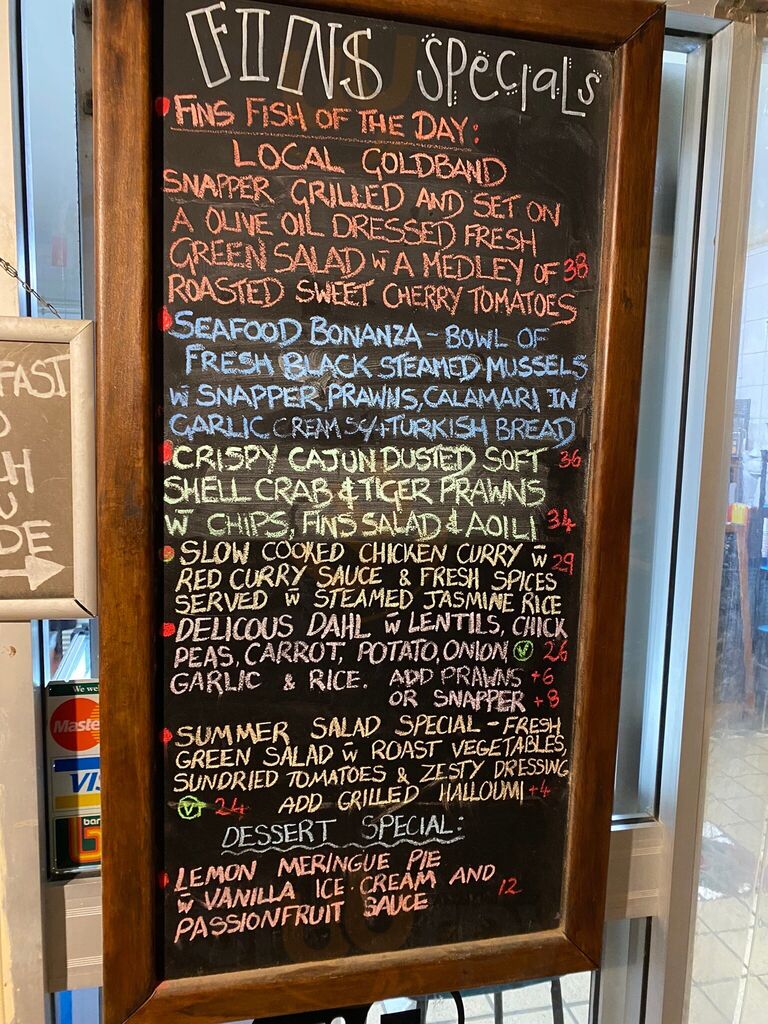 FINS Specials
FINS FISH OF THE DAY:
LOCAL GOLDBAND
SNAPPER GRILLED AND SET ON
A OLIVE OIL DRESSED FRESH
GREEN SALAD w̄ A MEDLEY OF 38
ROASTED SWEET CHERRY TOMATOES
SEAFOOD BONANZA - BOWL OF
FRESH BLACK STEAMED MUSSELS
w̄ SNAPPER, PRAWNS, CALAMARI IN
GARLIC CREAM SC/+TURKISH BREAD
CRISPY CAJUN DUSTED SOFT 36
SHELL CRAB & TIGER PRAWNS
w̄ CHIPS, FINS SALAD & AOILI 34
SLOW COOKED CHICKEN CURRY w̄ 29
RED CURRY SAUCE & FRESH SPICES
SERVED w̄ STEAMED JASMINE RICE
DELICOUS DAHL w̄ LENTILS, CHICK
PEAS, CARROT, POTATO, ONION Ⓥ 26
GARLIC & RICE. ADD PRAWNS +6
OR SNAPPER +8
SUMMER SALAD SPECIAL - FRESH
GREEN SALAD w̄ ROAST VEGETABLES,
SUNDRIED TOMATOES & ZESTY DRESSING
Ⓥ 24 ADD GRILLED HALLOUMI +4
DESSERT SPECIAL:
LEMON MERINGUE PIE
w̄ VANILLA ICE-CREAM AND 12
PASSIONFRUIT SAUCE
FAST
DE
We we
Maste
VIS
ban